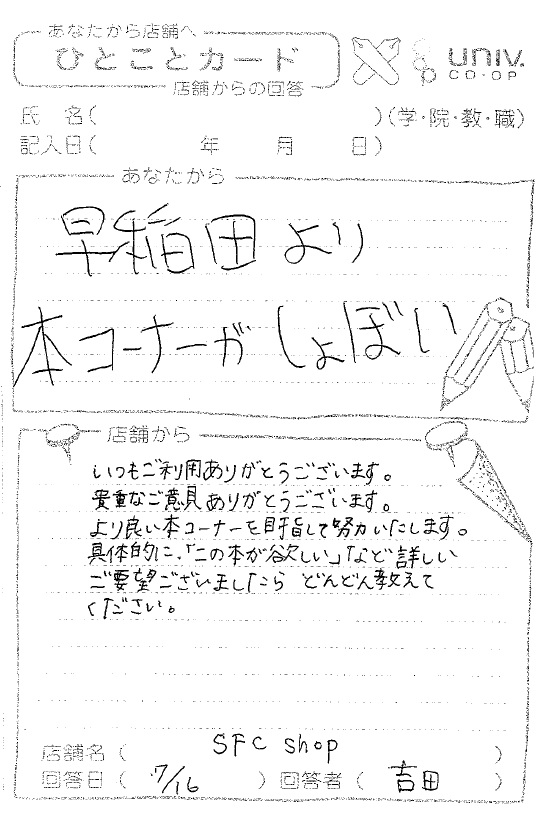 あなたから店舗へ
ひとことカード
店舗からの回答
univ.
CO-OP
氏 名( )(学・院・教・職)
記入日( 年 月 日)
あなたから
早稲田より
本コーナーがしょぼい
店舗から
いつもご利用ありがとうございます。
貴重なご意見ありがとうございます。
より良い本コーナーを目指して努力いたします。
具体的に、「この本が欲しい」など詳しい
ご要望ございましたら どんどん教えて
ください。
店舗名( SFC shop )
回答日( 7/16 )回答者( 吉田 )